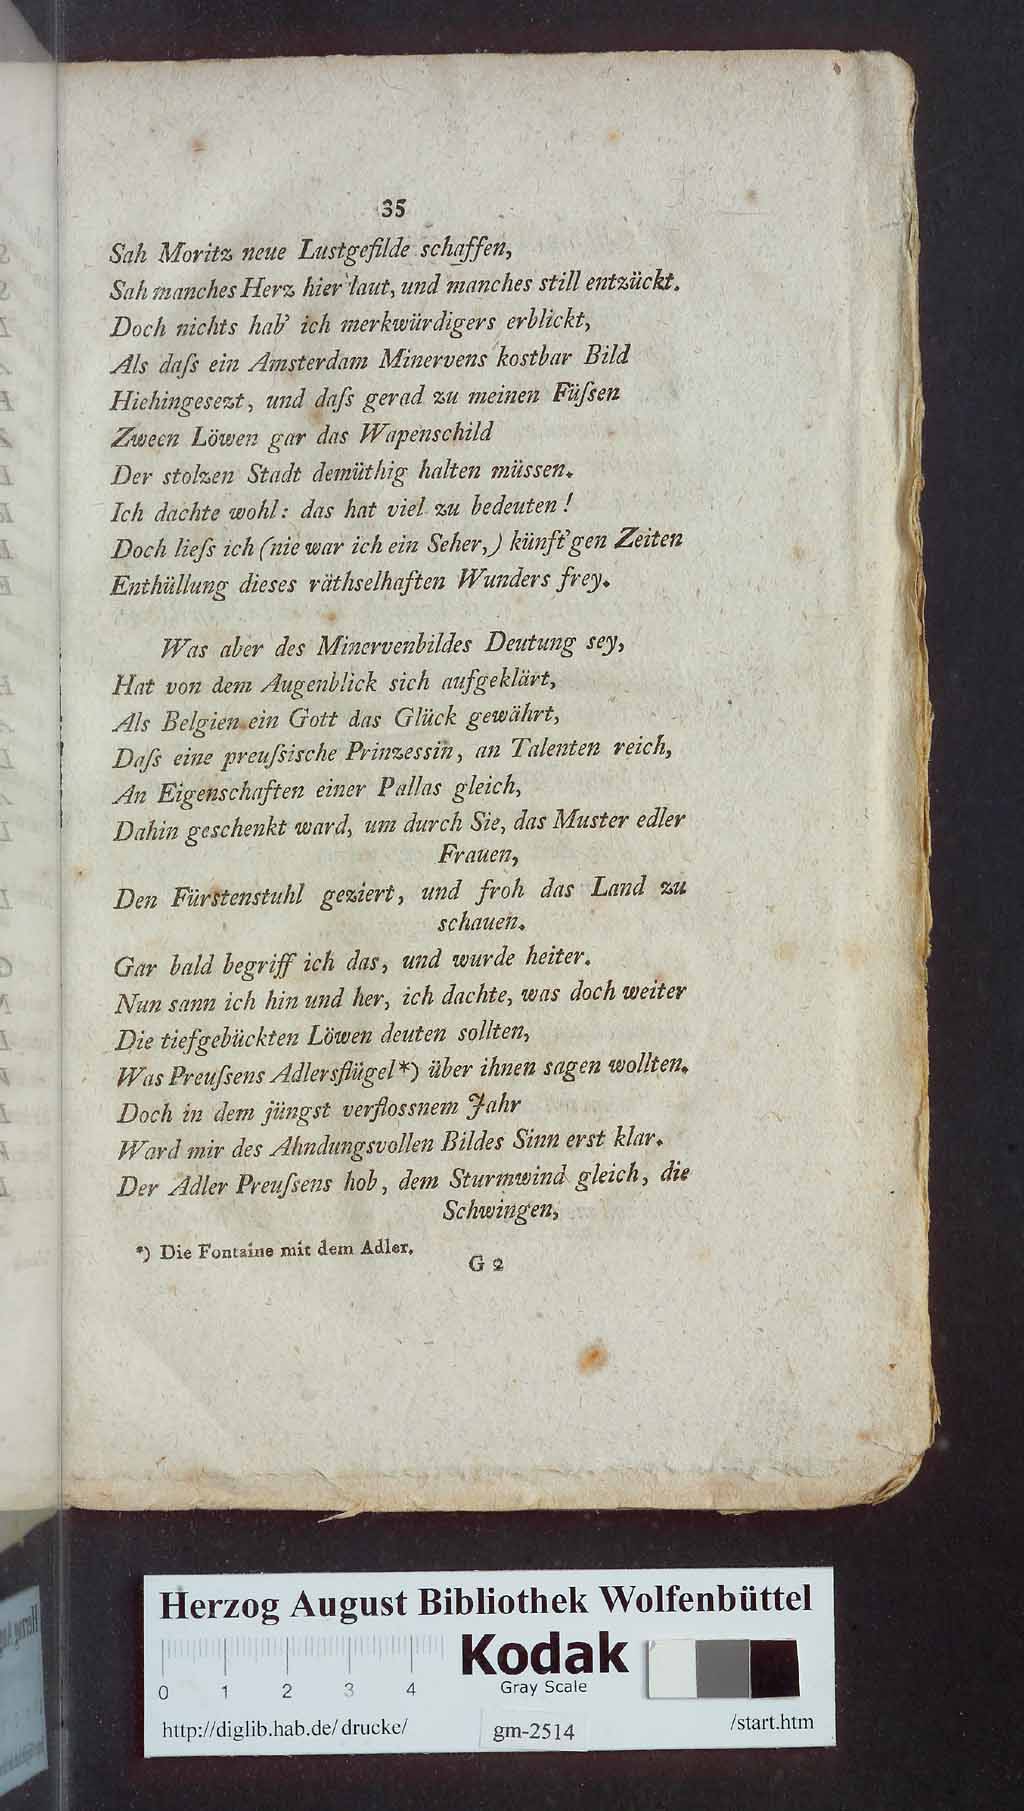 35
Sah Moritz neue Lustgefilde schaffen,
Sah manches Herz hier laut, und manches still entzückt.
Doch nichts hab' ich merkwürdigers erblickt,
Als daſs ein Amsterdam Minervens kostbar Bild
Hiehingesezt, und daſs gerad zu meinen Füſsen
Zween Löwen gar das Wapenschild
Der stolzen Stadt demüthig halten müssen.
Ich dachte wohl: das hat viel zu bedeuten!
Doch lieſs ich (nie war ich ein Seher,) künft'gen Zeiten
Enthüllung dieses räthselhaften Wunders frey.
Was aber des Minervenbildes Deutung sey,
Hat von dem Augenblick sich aufgeklärt,
Als Belgien ein Gott das Glück gewährt,
Daſs eine preuſsische Prinzessin, an Talenten reich,
An Eigenschaften einer Pallas gleich,
Dahin geschenkt ward, um durch Sie, das Muster edler
Frauen,
Den Fürstenstuhl geziert, und froh das Land zu
schauen.
Gar bald begriff ich das, und wurde heiter.
Nun sann ich hin und her, ich dachte, was doch weiter
Die tiefgebückten Löwen deuten sollten,
Was Preuſsens Adlersflügel*) über ihnen sagen wollten.
Doch in dem jüngst verflossnem Jahr
Ward mir des Ahndungsvollen Bildes Sinn erst klar.
Der Adler Preuſsens hob, dem Sturmwind gleich, die
Schwingen,
*) Die Fontaine mit dem Adler.
G 2
Herzog August Bibliothek Wolfenbüttel
Kodak
Gray Scale
0 1 2 3 4
http://diglib.hab.de/drucke/ gm-2514 /start.htm